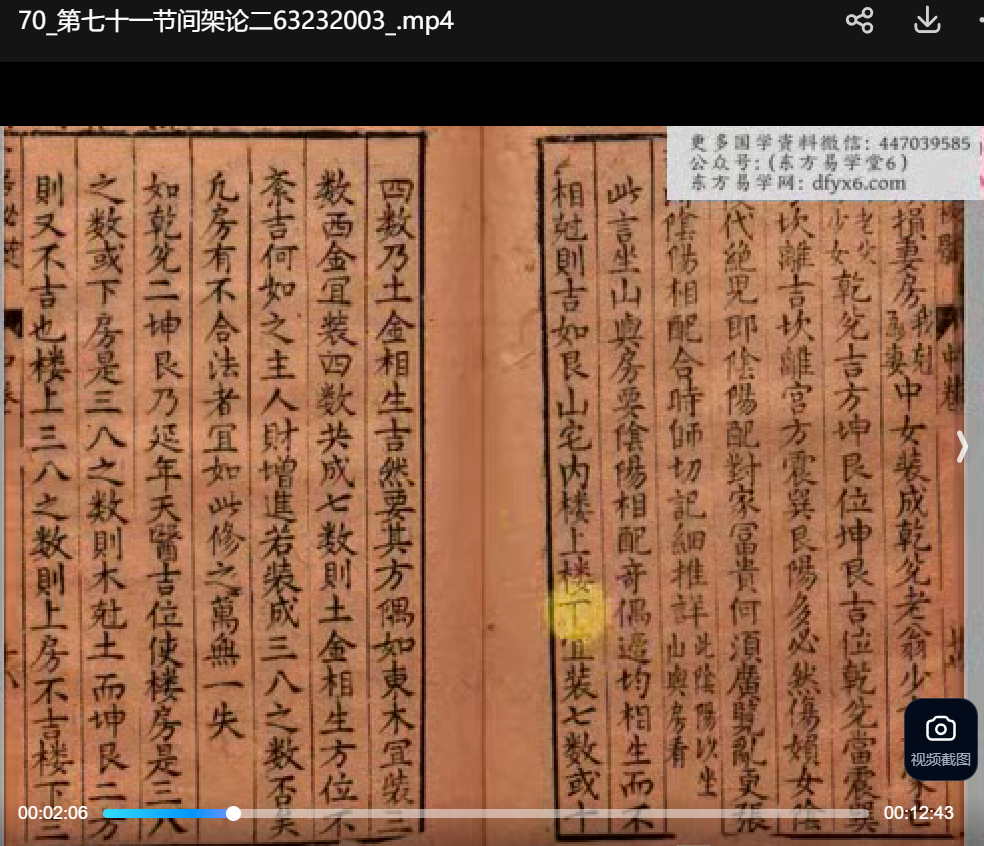 70_第七十一节间架论二63232003_.mp4
更多国学资料微信：447039585
公众号：（东方易学堂6）
东方易学网：dfyx6.com
損妻房我剋為妻中女裝成乾兊老翁少
老尖少女乾兊吉方坤艮位坤艮吉位乾兊當震巽
坎離吉坎離宮方震巽艮陽多必然傷嬪女陰
代絕兒即陰陽配對家冨貴何須廣覽亂更張
陰陽相配合時師切記細推詳此陰陽以坐山與房看
此言坐山與房要陰陽相配竒偶逰均相生而不
相尅則吉如艮山宅内楼上楼下宜装七数或十
四数乃土金相生吉然要其方偶如東木宜装三
数西金宜装四数共成七数則土金相生方位不
紊吉何如之主人財增進若装成三八之数否矣
凢房有不合法者宜如此修之萬無一失
如乾兊二坤艮乃延年天醫吉位使楼房是三八
之数或下房是三八之数則木尅土而坤艮二方
則又不吉也楼上三八之数則上房不吉楼下三
视频截图
00:02:06
00:12:43